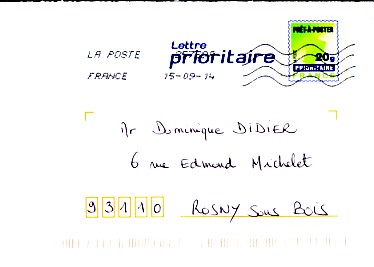 Lettre
prioritaire
LA POSTE
FRANCE 15-09-14
PRÊT-À-POSTER
20g
PRIORITAIRE
FRANCE
Mr Dominique DIDIER
6 rue Edmond Michelet
93110 ROSNY Sous Bois